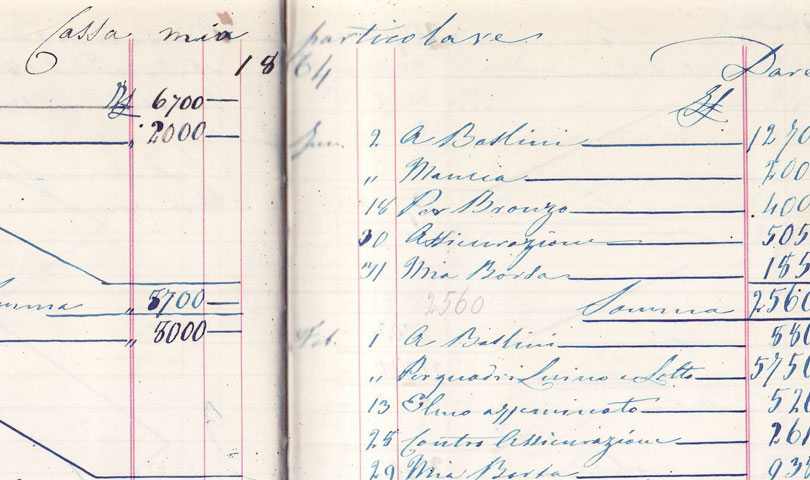 Cassa mia
18
6700
" 2000
Somma " 8700
" 8000
particolare
64
Dare
Gen. 2 A Baslini 1270
" Mancia 200
18 Per Bronzo 400
30 Assicurazione 505
31 Mia Borsa 185
2560 Somma 2560
Feb. 1 A Baslini 880
" Per quadri Luino e Lotto 5750
13 Elmo 520
25 Contro Assicurazione 261
29 Mia Borsa 93